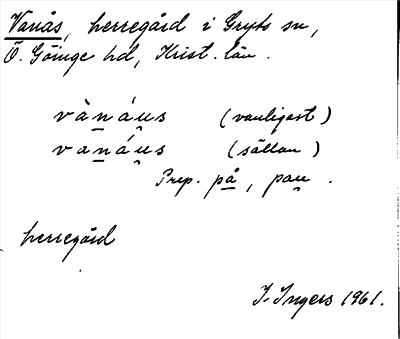 Vanås, herregård i Gryts sn,
Ö. Göinge hd, Krist. län.
vànáu̯s (vanligast)
vanáu̯s (sällan)
Prep. på, pau̯.
herregård
I. Ingers 1961.